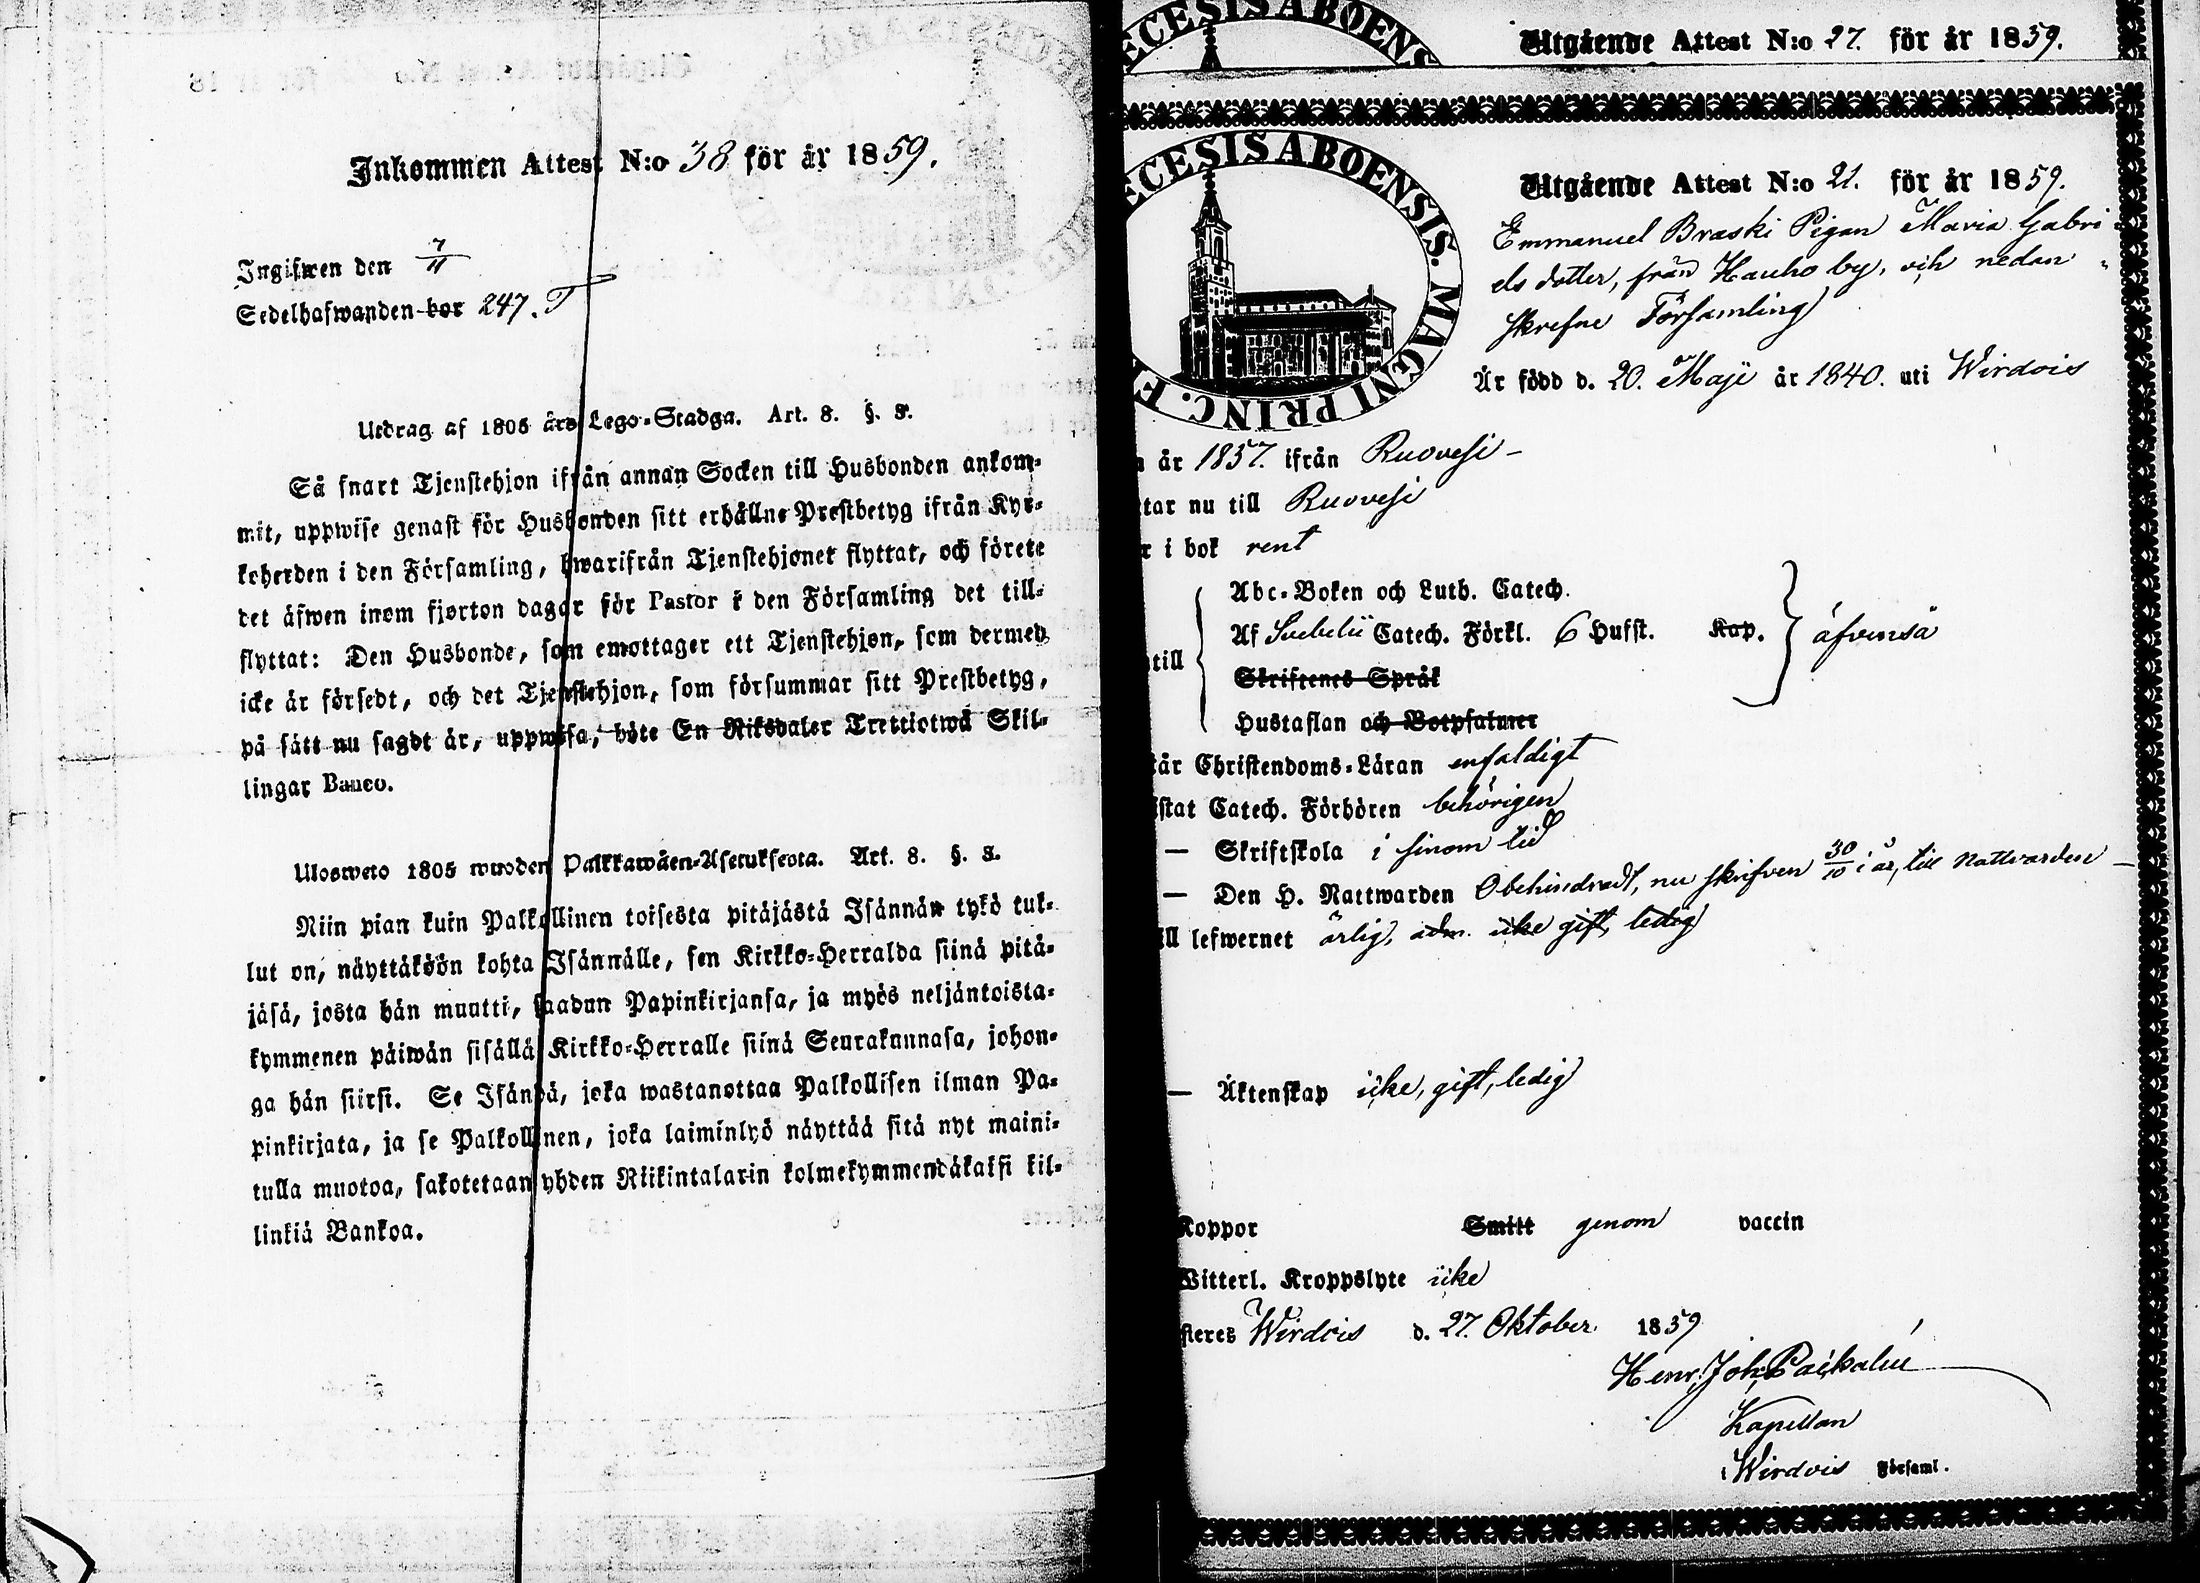 Inkommen Attest N:o 38 för år 1859.
Ingifwen den 7/11
Sedelhafwanden bor 247. T
Utdrag af 1805 års Lego-Stadga. Art. 8. §. 8.
Så snart Tjenstehjon ifrån annan Socken till Husbonden ankom-
mit, uppwise genast för Husbonden sitt erhållne Prestbetyg ifrån Kyr-
koherden i den Församling, hwarifrån Tjenstehjonet flyttat, och förete
det äfwen inom fjorton dagar för Pastor i den Församling det till-
flyttat: Den Husbonde, som emottager ett Tjenstehjon, som dermed
icke är försedt, och det Tjenstehjon, som försummar sitt Prestbetyg,
på sätt nu sagdt är, uppwisa, böte En Riksdaler Trettiotwå Skil-
lingar Banco.
Ulosweto 1805 wuoden Palkkawäen-Asetuksesta. Art. 8. §. 8.
Niin pian kuin Palkollinen toisesta pitäjästä Isännän tykö tul-
lut on, näyttäköön kohta Isännälle, sen Kirkko-Herralda siinä pitä-
jäsä, josta hän muutti, saadun Papinkirjansa, ja myös neljäntoista-
kymmenen päiwän sisällä Kirkko-Herralle siinä Seurakunnasa, johon-
ga hän siirsi. Se Isändä, joka wastanottaa Palkollisen ilman Pa-
pinkirjata, ja se Palkollinen, joka laiminlyö näyttää sitä nyt maini-
tulla muotoa, sakotetaan yhden Riikintalarin kolmekymmendäkaksi kil-
linkiä Bankoa.
ECESIS ABOENS
Utgående Attest N:o 27. för år 1859.
ECESIS ABOENSIS. MAGNI PRINC. F
Utgående Attest N:o 21. för år 1859.
Emmanuel Braski Pigan Maria Gabri
els dotter, från Hauho by, och nedan
skrefne Församling
Är född d. 20. Maji år 1840. uti Wirdois
n år 1857. ifrån Ruovesi
ttar nu till Ruovesi
r i bok rent
Abc-Boken och Luth. Catech.
till Af Svebelii Catech. Förkl. 6 Hufst. Kap. äfvenså
Skriftenes Språk
Hustaflan och Botpsalmer
tår Christendoms-Läran enfaldigt
istat Catech. Förhören behörigen
— Skriftskola i sinom tid
— Den H. Nattwarden Obehindradt, nu skrifven 30/10 i år, till nattvarden —
ill lefwernet ärlig, icke gift, ledig
— Äktenskap icke, gift, ledig
Koppor Smitt genom vaccin
Witterl. Kroppslyte icke
steres Wirdois d. 27. Oktober 1859
Henr. Joh. Paikalin
Kapellan
i Wirdois Församl.